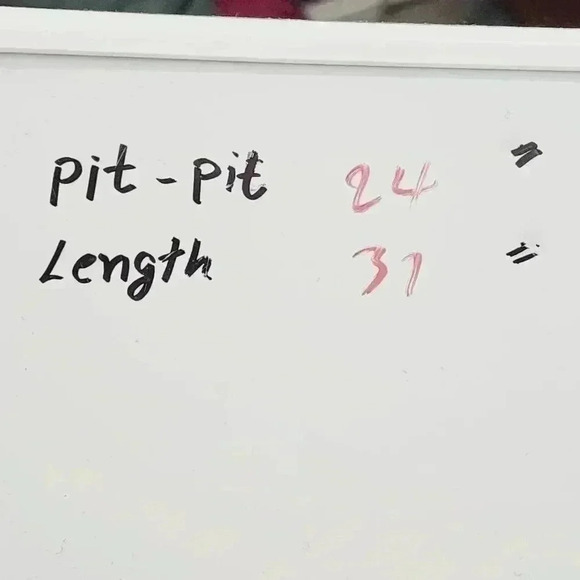 Pit-Pit 24 "
Length 31 "